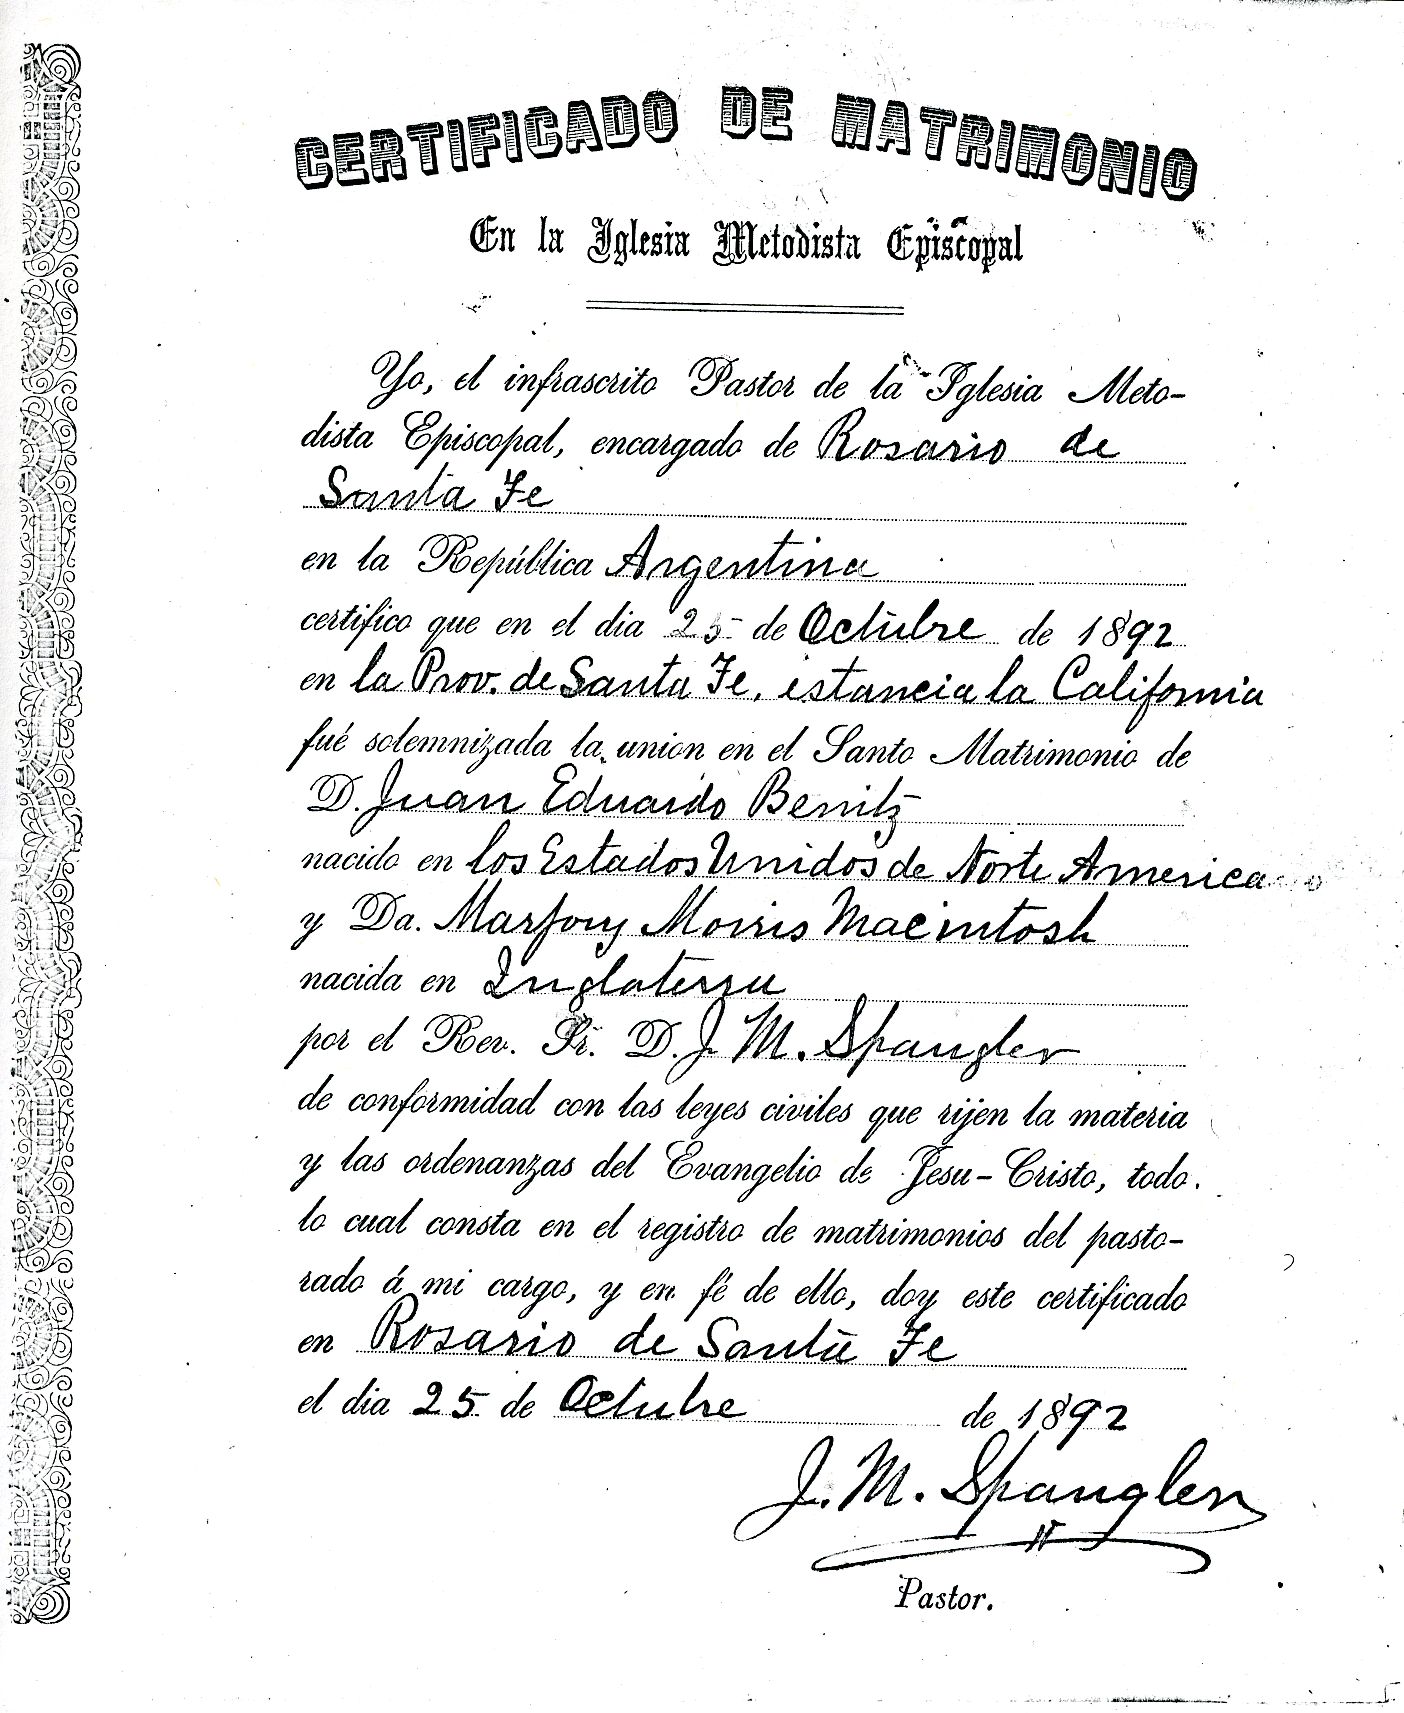 CERTIFICADO DE MATRIMONIO
En la Iglesia Metodista Episcopal
Yo, el infrascrito Pastor de la Iglesia Meto-
dista Episcopal, encargado de Rosario de
Santa Fe
en la República Argentina
certifico que en el dia 25 de Octubre de 1892
en la Prov. de Santa Fe, estancia la California
fué solemnizada la union en el Santo Matrimonio de
D. Juan Eduardo Benitz
nacido en los Estados Unidos de Norte America
y Da. Marjory Morris Macintosh
nacida en Inglaterra
por el Rev. Sr. D. J. M. Spangler
de conformidad con las leyes civiles que rijen la materia
y las ordenanzas del Evangelio de Jesu-Cristo, todo
lo cual consta en el registro de matrimonios del pasto-
rado á mi cargo, y en fé de ello, doy este certificado
en Rosario de Santa Fe
el dia 25 de Octubre de 1892
J. M. Spangler
Pastor.